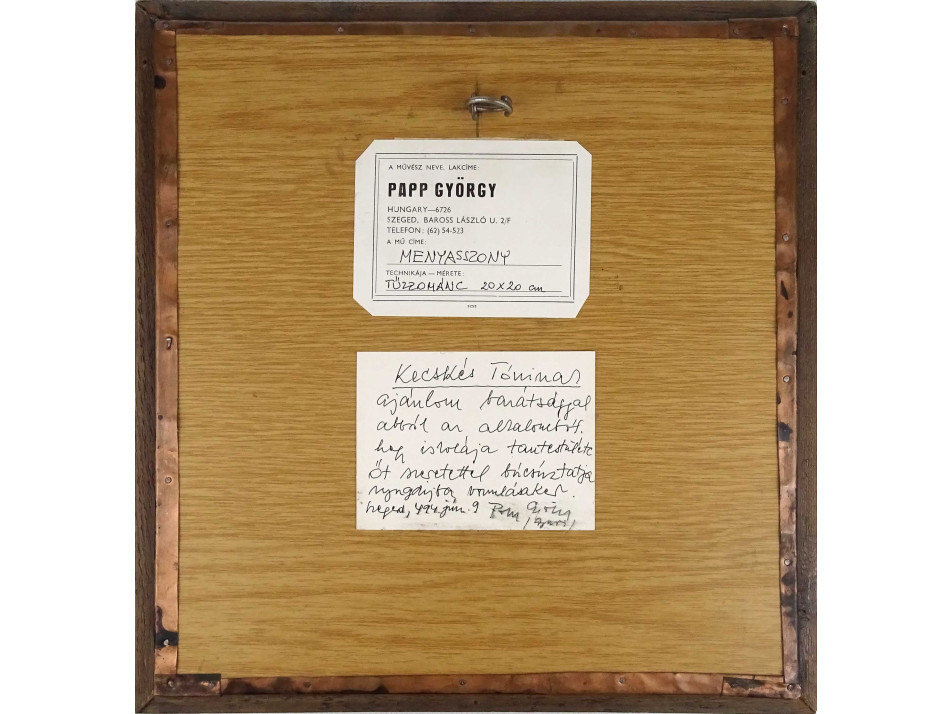 A MŰVÉSZ NEVE, LAKCÍME:
PAPP GYÖRGY
HUNGARY—6726
SZEGED, BAROSS LÁSZLÓ U. 2/F
TELEFON: (62) 54-523
A MŰ CÍME:
MENYASSZONY
TECHNIKÁJA — MÉRETE:
TŰZZOMÁNC 20x20 cm
Kecskés Tóninak
ajánlom barátsággal
abból az alkalomból,
hogy iskolája tantestülete
őt szeretettel búcsúztatja
nyugdíjba vonulásakor.
Szeged, jún. 9 Papp György